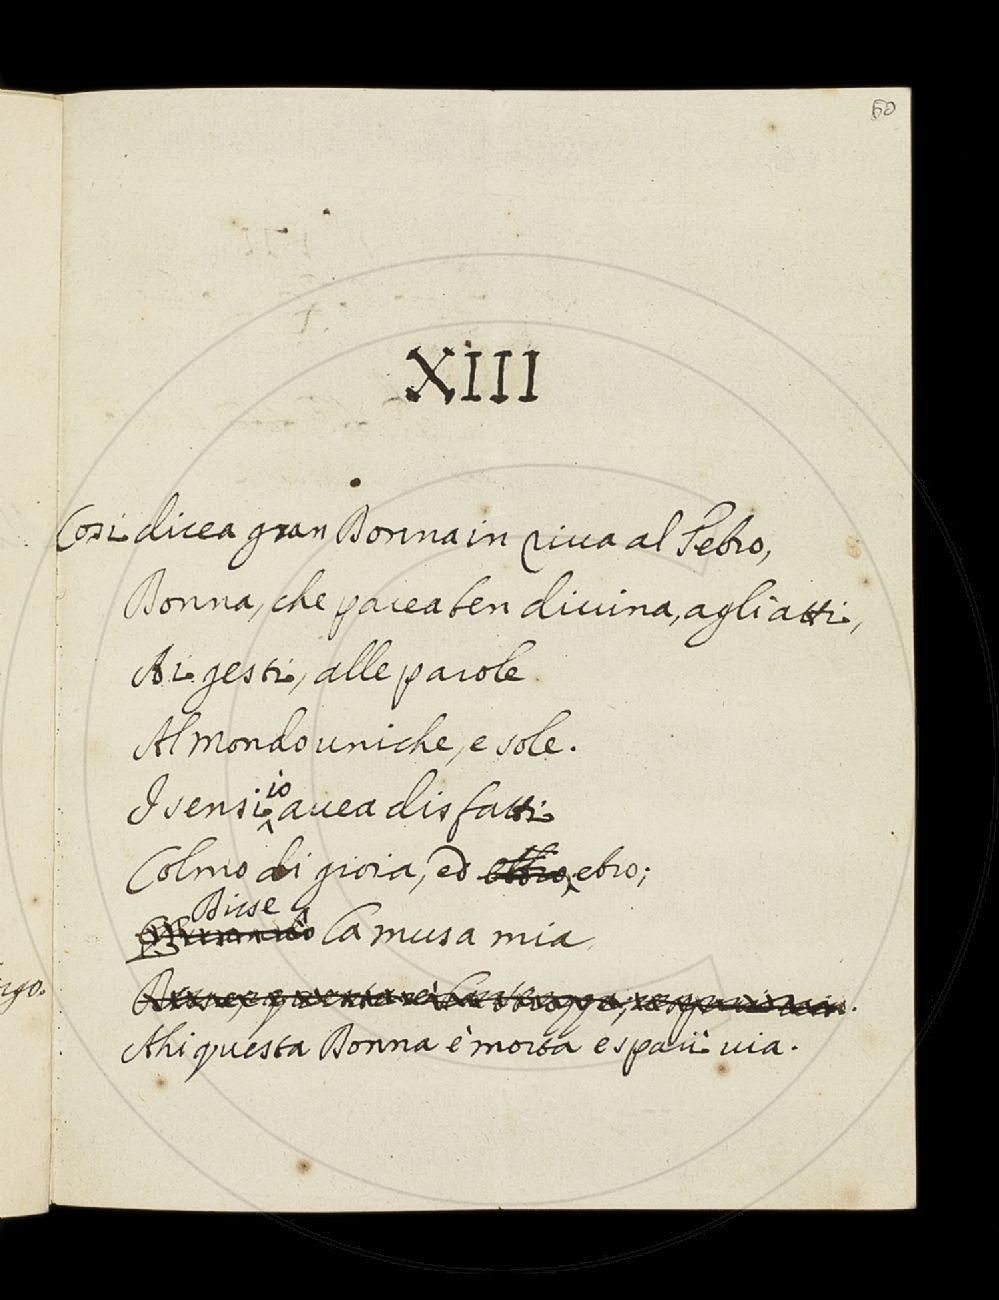 60
XIII
Cosi dicea gran Donna in riua al Sebro,
Donna, che parea ben diuina, agli atti,
Ai gesti, alle parole
Al mondo uniche, e sole.
I sensi io auea disfatti
Colmo di gioia, ed ebro;
Disse
La musa mia
Ahi questa Donna è morta e sparìi uia.
ngo.